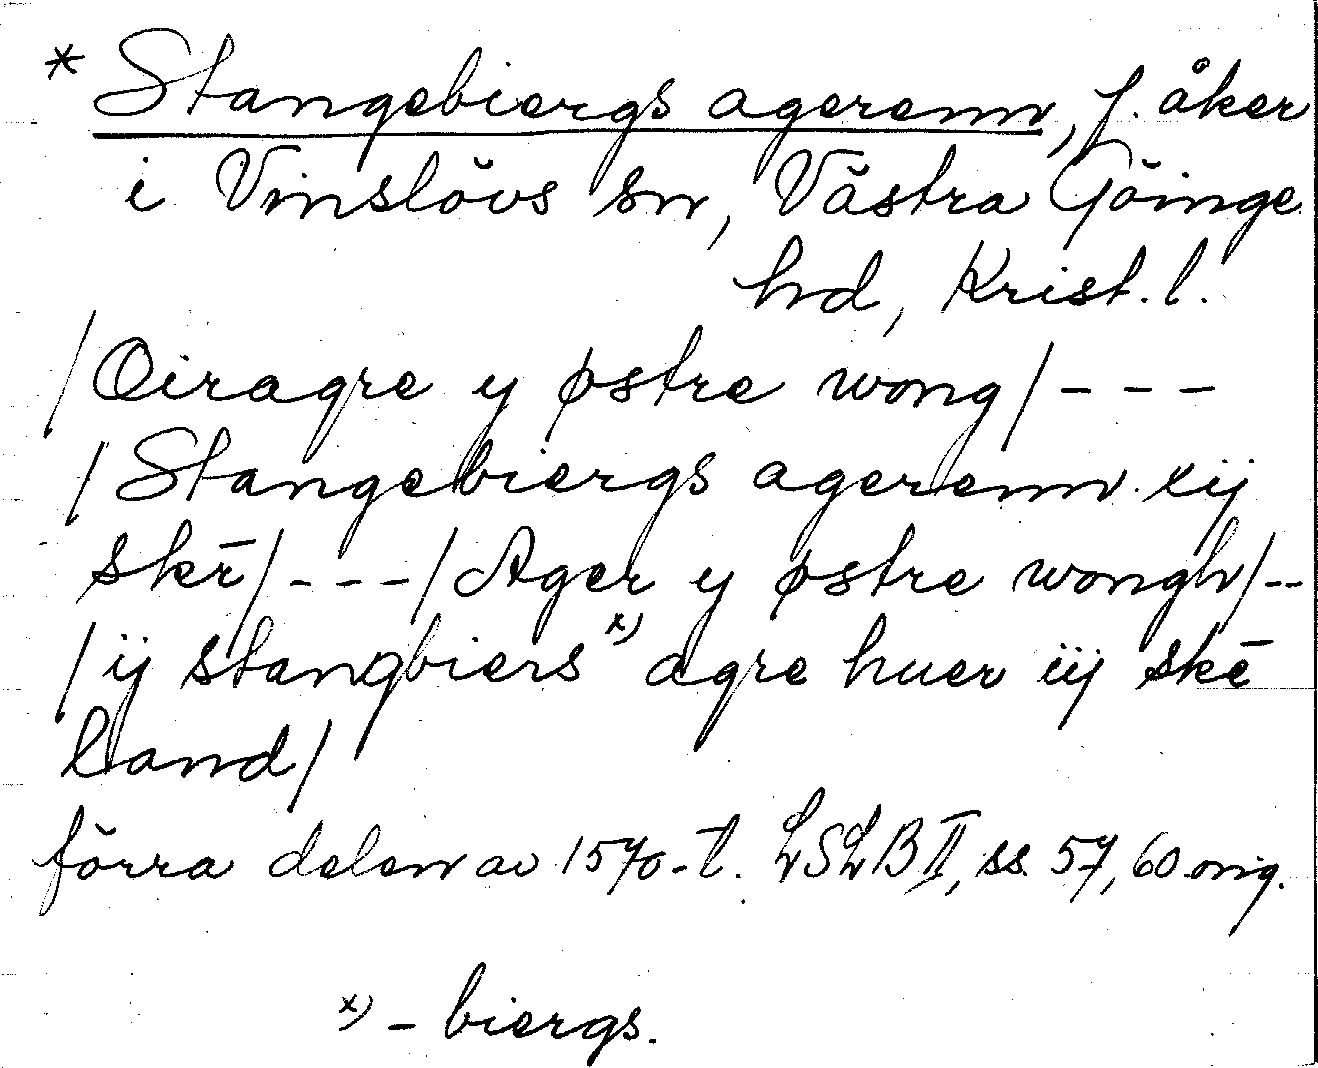 * Stangebiergs agerenn, f. åker
i Vinslövs sn, Västra Göinge
hd, Krist. l.
/Oiragre y østre wong/ - - -
/Stangebiergs agerenn xij
skē/ - - - /Ager y østre wongh/ --
/ij stangbiers x) agre huer iij skē
land/
förra delen av 1570-t. LSLB II, ss. 57, 60 orig.
x) - biergs.